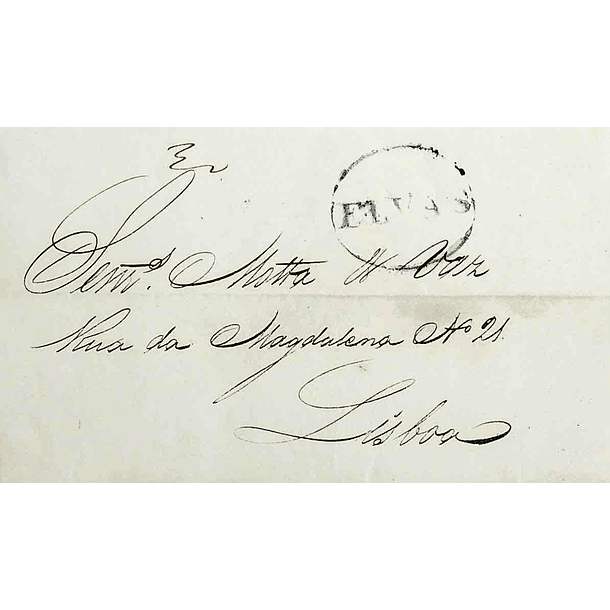 ELVAS
Motta & Vaz
Rua da Magdalena Nº 21
Lisboa